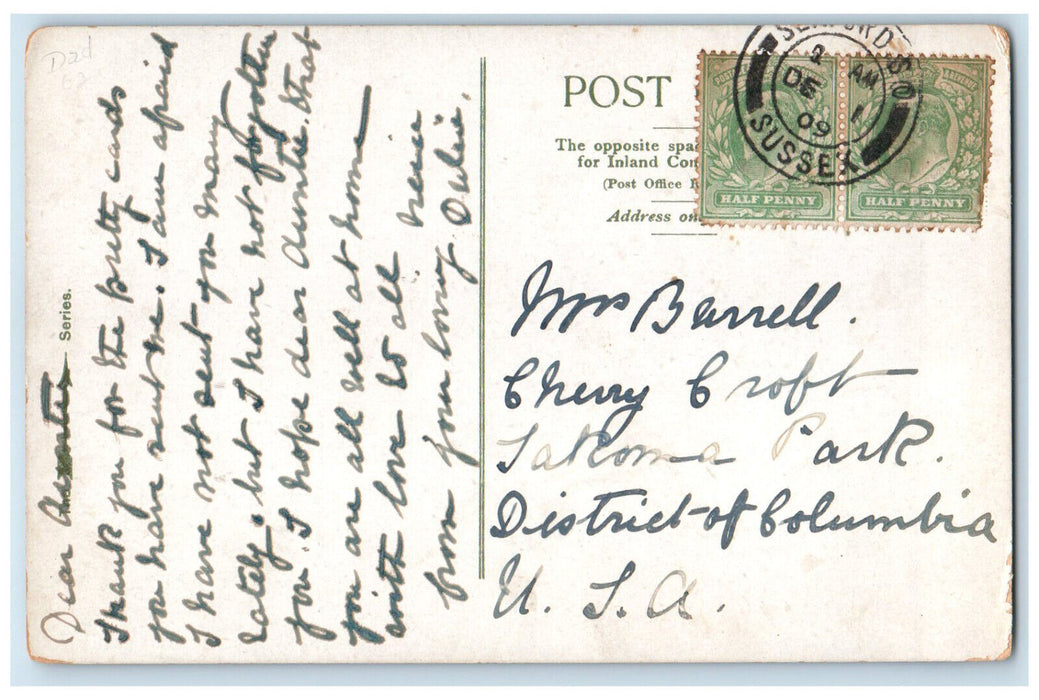 Dad
Dear Auntie
Thank you for the pretty cards
you have sent me. I am afraid
I have not sent you many
lately, but I have not forgotten
you. I hope dear Auntie that
you are all well at home
with love to all here
from your loving
Series.
POST
The opposite spa
for Inland Com
(Post Office R
Address on
SUSSEX
AM
DE 1
09
HALF PENNY
HALF PENNY
Mrs Barrell.
Cherry Croft
Takoma Park.
District of Columbia
U. S. A.